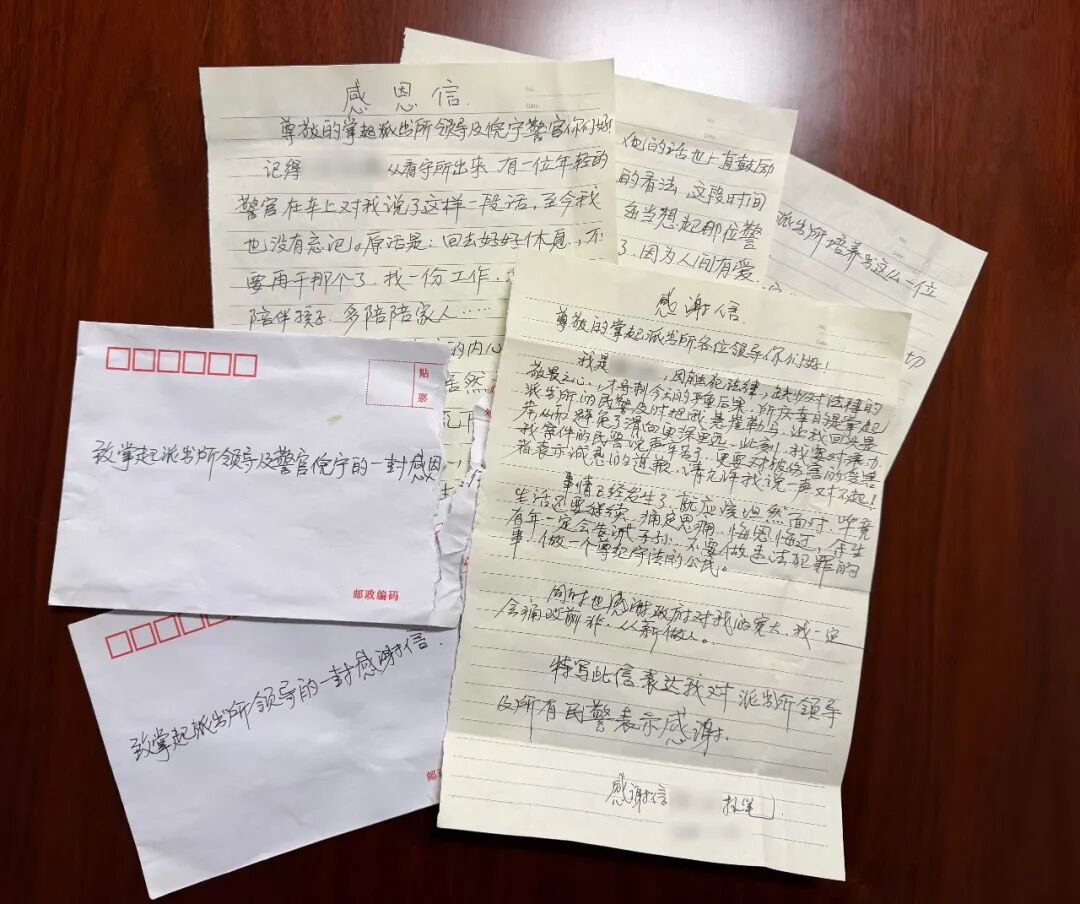 感恩信.
尊敬的掌起派出所领导及倪宁警官你们好!
记得 从看守所出来 有一位年轻的
警官在车上对我说了这样一段话,至今我
也没有忘记。原话是:回去好好休息,不
要再干那个了.找一份工作.
陪伴孩子.多陪陪家人……
的内心
居然
No.
Date.
他的话也上有鼓励
的看法,这段时间
每当想起那位警
了.因为人间有爱.
派出所培养出这么一位
切
感谢信.
尊敬的掌起派出所各位领导你们好!
我是 ,因触犯法律,在缺少对法律的
敬畏之心,才导制今天的严重后果,所庆幸自是掌起
派出所的民警及时把我悬崖勒马,让我回头是
岸,从而避免了滑向更深更远,此刻,我要对承办
我案件的民警说声辛苦了,更要对被伤害的受害
者表示诚恳的道歉,请允许我说一声对不起!
事情已经发生了,就应该坦然面对,毕竟
生活还要继续,痛定思痛,悔恩悔过,余生
有年一定会告诫子孙,不要做违法犯罪的
事,做一个尊纪守法的公民。
同时也感谢政府对我的宽大,我一定
会痛改前非,从新做人。
特写此信表达我对派出所领导
及所有民警表示感谢.
感谢信
执笔
贴
票
致掌起派出所领导及警官倪宁的一封感恩
邮政编码
致掌起派出所领导的一封感谢信.
邮政